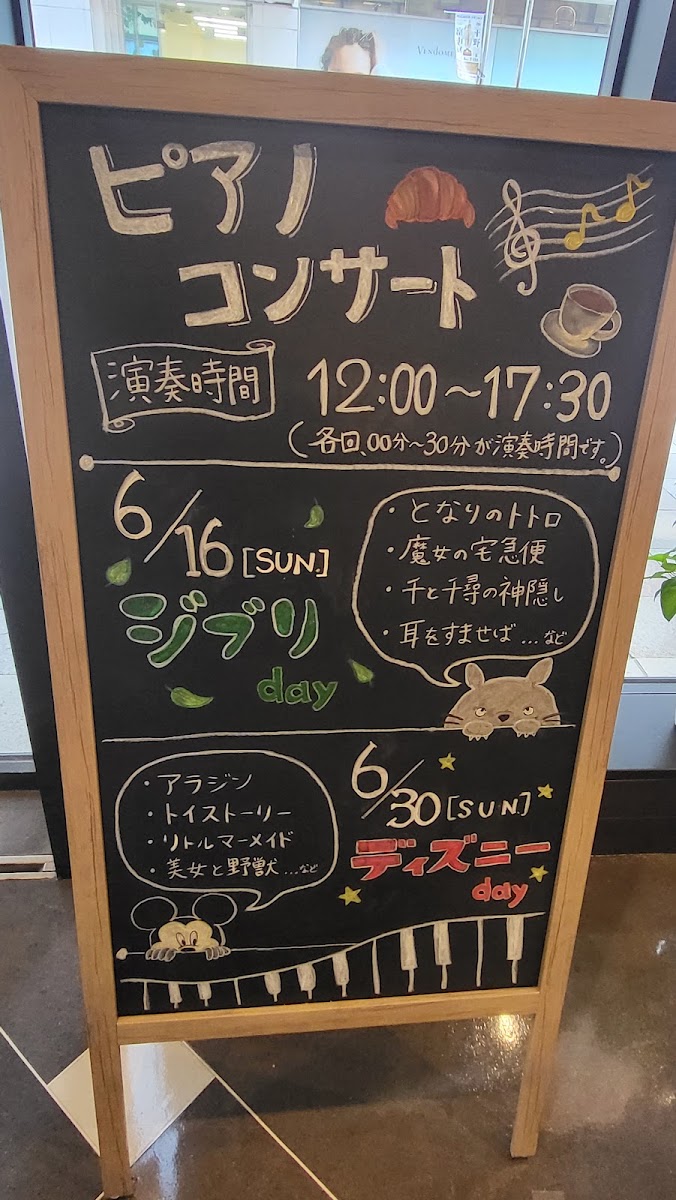 ピアノ
コンサート
演奏時間
12:00～17:30
(各回、00分～30分が演奏時間です。)
6/16 [SUN.]
ジブリ
day
・となりのトトロ
・魔女の宅急便
・千と千尋の神隠し
・耳をすませば…など
・アラジン
・トイストーリー
・リトルマーメイド
・美女と野獣…など
6/30 [SUN.]
ディズニー
day